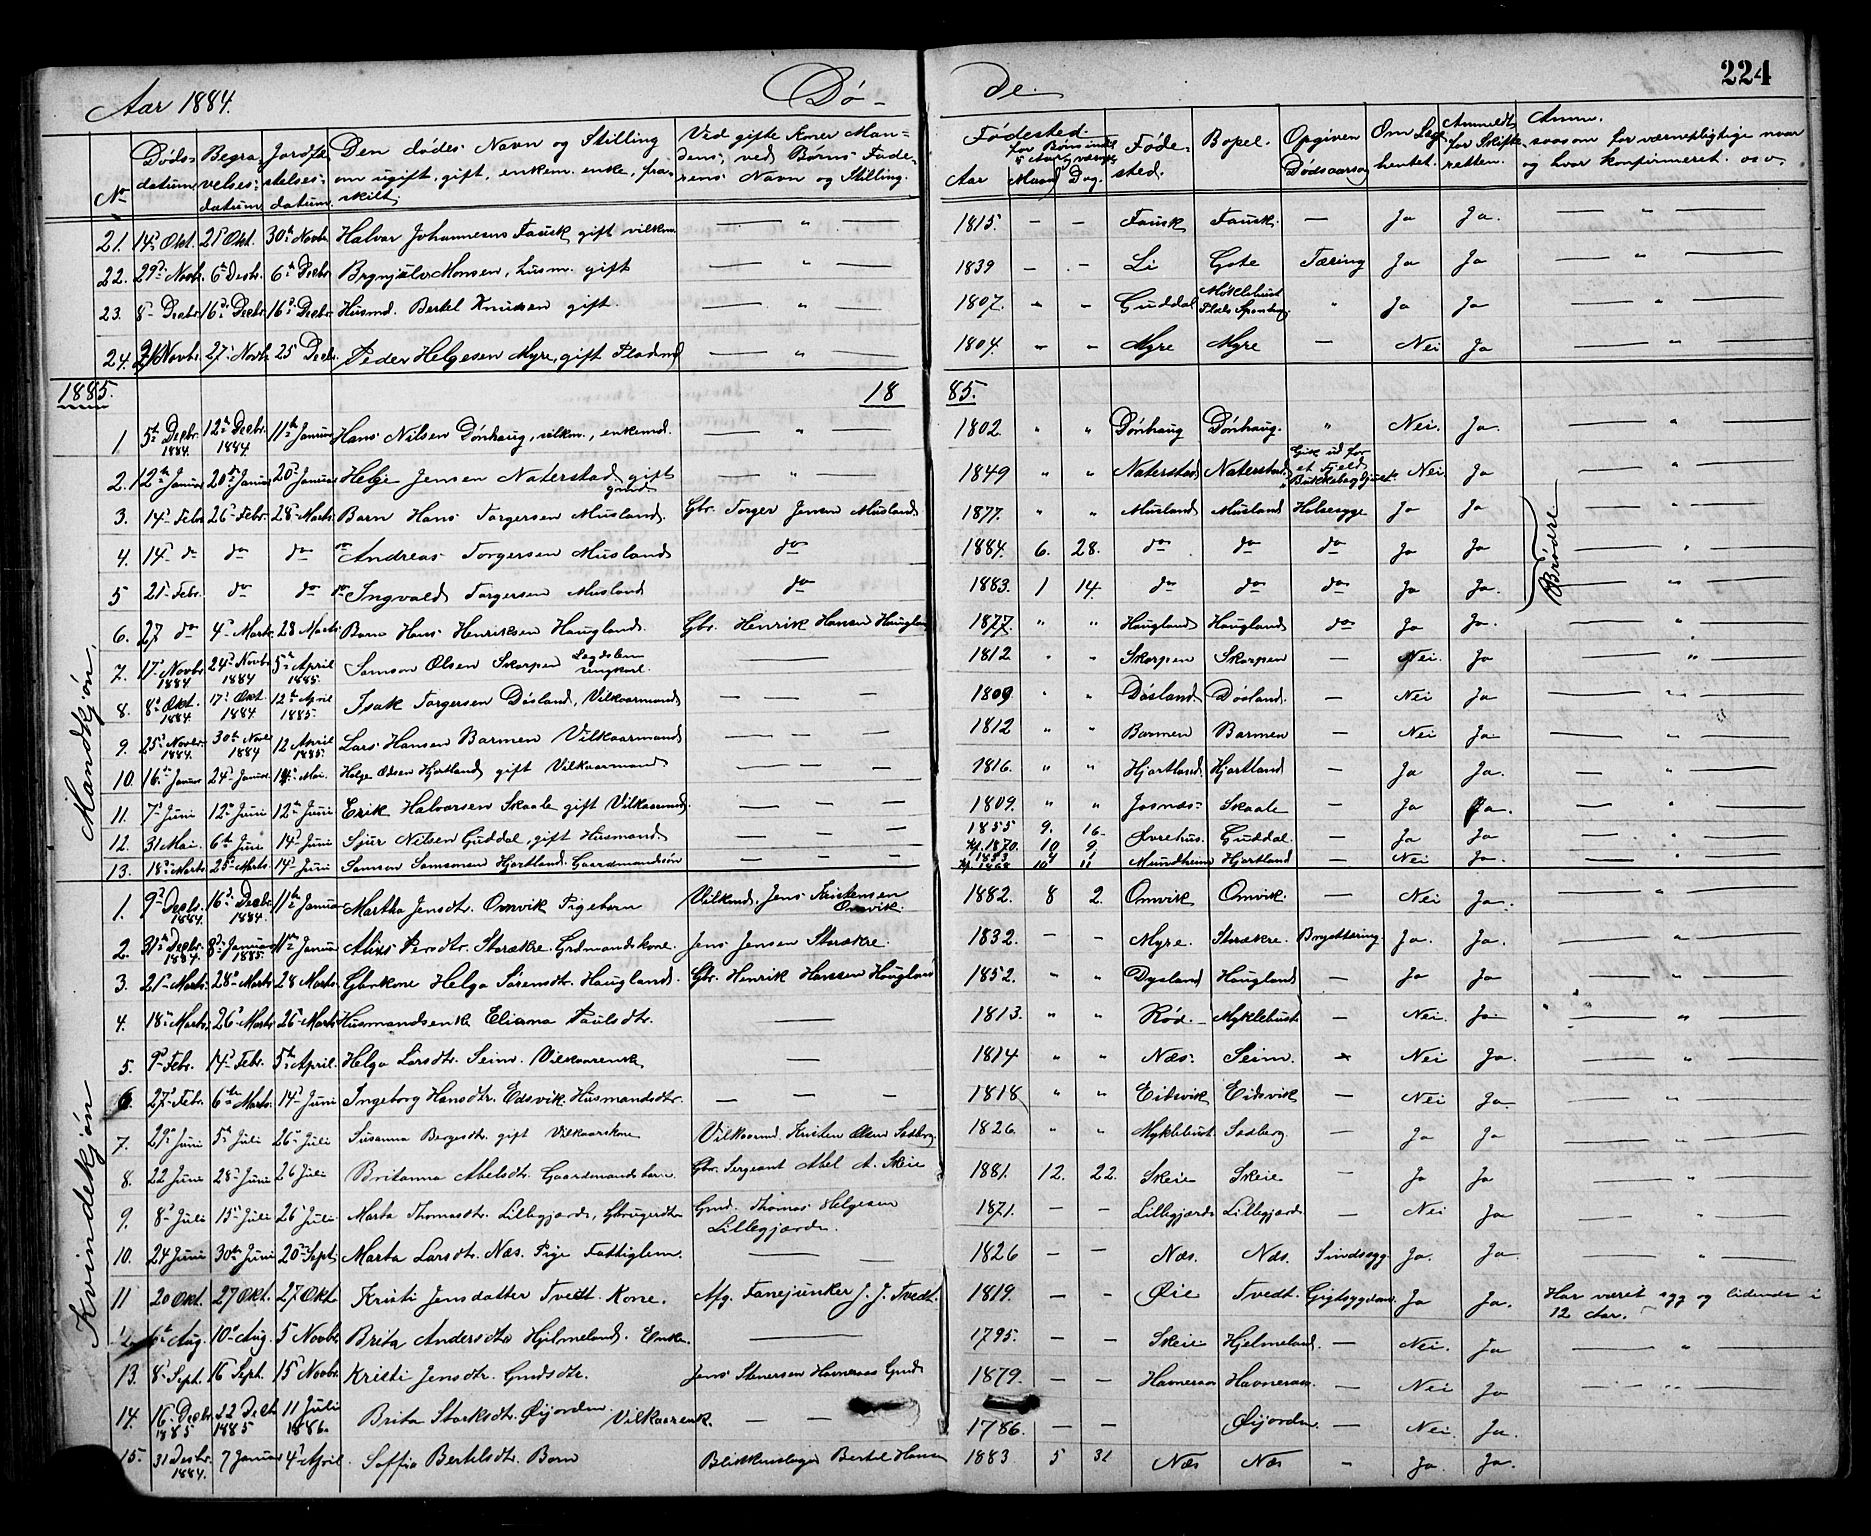 224
Aar 1884. Dø- de
No Døds- datum Begra- velses- datum Jordfæ- stelses- datum Den dødes Navn og Stilling om ugift, gift, enkem. enke, fra- skilt. Ved gifte Koner Man- dens, ved Børns Fade- rens Navn og Stilling. Fødested. Aar Maaned Dag. Føde- sted. Bopel. Opgiven Dødsaarsag Om Læge hentet. Anmeldt for Skifte retten. Anm. saasom for værnepligtige naar og hvor konfirmeret. osv.
21. 14 Okt. 21 Okt. 30 Novbr. Halvor Johannesen Fausk gift vilkm. " 1815. — — Fausk Fausk. — Ja Ja. "
22. 29 Novbr. 6 Decbr. 6 Decbr. Brynjulv Monsen, husm. gift " 1839 — — Li Gote Tæring Ja Ja "
23. 8 Decbr. 16 Decbr. 16 Decbr. Husmd. Bertel Knudsen gift. " 1807. " — Guddal Møklebust Plads " Ja Ja "
24. 21 Novbr. 27 Novbr. 25 Decbr. Peder Helgesen Myre, gift Pladsmd " 1804. " " Myre Myre — Nei Ja "
1885. 18 85.
Mandkjøn.
1 5te Decbr. 1884. 12 Decbr. 1884. 11te Januar Hans Nilsen Dønhaug, vilkm., enkemd. " 1802. " " Dønhaug Dønhaug. " Nei. Ja. "
2. 12te Januar 20de Januar 20 Januar Helge Jensen Naterstad gift gmd " 1849 " " Naterstad Naterstad. Gik ud for et Fjeld Nei Ja "
3. 14 Febr. 26 Febr. 28 Marts. Barn Hans Torgersen Musland. Gbr. Torger Jensen Musland 1877. " " Musland Musland Halsesyge Ja Ja "
4. 14 do do do do Andreas Torgersen Musland do 1884. 6. 28. do do do Ja Ja Brødre "
5 21 Febr. do do do Ingvald Torgersen Musland do 1883. 1 14. do do do Ja Ja. "
6. 27 do 4 Marts. 28 Marts Barn Hans Henriksen Haugland. Gbr. Henrik Hansen Haugland 1877. " " Haugland Haugland do Ja Ja. "
7. 17 Novbr 1884 24 Novbr 1884 5te April 1885. Samson Olsen Skorpen Lægdslem ungkarl. 1812 " " Skorpen Skorpen — Nei. Ja "
8. 8 Okt. 1884 17 Okt 1884 12te April 1885. Isak Torgersen Døsland, Vilkaarmand — — — 1809 " " Døsland. Døsland. — Nei Ja "
9. 25 Novbr. 1884. 30te Novbr 1884 12 April 1885. Lars Hansen Barmen Vilkaarmand — — — 1812 " " Barmen Barmen — Nei Ja "
10. 16 Januar 24 Januar 14 Mai. Helge Olsen Hjortland gift Vilkaarmand — — — 1816. " " Hjortland Hjortland — Ja Ja. "
11. 7 Juni 12te Juni 12te Juni Erik Halvorsen Skaale gift Vilkaarmd. — — — 1809. " " Josnæs Skaale — Ja Ja. "
12. 31 Mai. 6te Juni 14 Juni Sjur Nilsen Guddal, gift Husmand. — — — 1855 9. 16. 1870. 10 9 Øvrehus. Guddal. — Ja Ja "
13. 18 Marts 25 Marts 14 Juni Samson Samsonsen Hjortland. Gaardmandsøn — — — 1853 4 1 1868 10 11 Mundheim Hjortland — Nei Ja "
Kvindekjøn
1. 9 Decbr. 1884. 16 Decbr. 1884. 11te Januar Martha Jensdtr. Omvik Pigebarn Vilkmd. Jens Kristensen Omvik. 1882. 8 2. Omvik Omvik. — Nei Ja. "
2. 31te Decbr. 1884. 8 Januar 1885. 11 Januar Persdtr. Storækre. Grdmandskone. Jens Jensen Storækre. 1832. — — Myre. Storækre. Brysttæring. Ja. Ja. "
3. 21 Marts. 28 Marts 28 Marts. Gbrkone Helga Sørensdtr. Haugland. Gbr. Henrik Hanssen Haugland 1852. " " Dysland Haugland — Ja Ja "
4. 18 Marts. 26 Marts 26 Marts Husmandsenke Elianna Paulsdtr. — 1813. " " Rød. Myklebust — Nei. Ja "
5. 9 Febr. 14 Febr. 5te April. Helga Larsdtr. Seim. Vilkaarenke — 1814 " " Næs. Seim. — Nei Ja. "
6. 27 Febr. 6te Marts. 14 Juni Ingeborg Hansdtr. Edsvik. Husmandsdtr. — — — 1818 " " Eidsvik Eidsvik — Nei Ja. "
7. 29 Juni 5te Juli 26 Juli Susanna Borgesdtr. gift Vilkaarskone Vilkaarmd. Kristen Olsen Sadberg. 1826. " " Myklebust. Sadberg. — Ja Ja "
8. 22 Juni 28 Juni 26 Juli Britanna Abelsdtr. Gaardmandsbarn. Gbr. Sergeant Abel A. Skeie 1881. 12. 22. Skeie Skeie — Ja Ja "
9. 8 Juli 15 Juli 26 Juli. Marta Thomasdtr. Lillegjærde, Gbrugerdtr Gmd. Thomas Helgesen Lillegjærde. 1871. — — Lillegjærde Lillegjærde. — Nei Ja "
10. 24 Juni 30te Juni 20 Sept. Marta Larsdtr. Næs. Pige Fattiglem. — 1826 — — Næs. Næs. Sindssyg. Ja. Ja. "
11 20 Okt. 27 Okt. 27 Okt. Kristi Jensdatter Tvedt. Kone. Afg. Fanejunker J. J. Tvedt. 1819. — — Øie Tvedt. Gigtsygdom. Ja Ja. Har været syg og lidende i 12 Aar.
12. 6te Aug. 10 Aug. 5 Novbr. Brita Andersdtr Hjelmeland. Enke. — 1795. — — Skeie Hjelmeland. — Nei. Ja "
13. 8 Sept. 16 Sept. 15 Novbr. Kristi Jensdtr. Gmdsdtr. Jens Stenersen Havneraas Gmd 1879. — — Havneraas Havneraas. — Nei Ja "
14. 16 Decbr. 1885 22 Decbr. 1885 11 Juli 1886. Brita Øijorden. Vilkaarenk. — — 1786. — — Øijorden. — Nei. Ja.
15. 31 Decbr. 1884. 7 Januar 4 April. Soffia Bertelsdtr. Barn Blikkenslager Bertel Hansen 1883 5 31 Næs Næs — Ja. Ja.